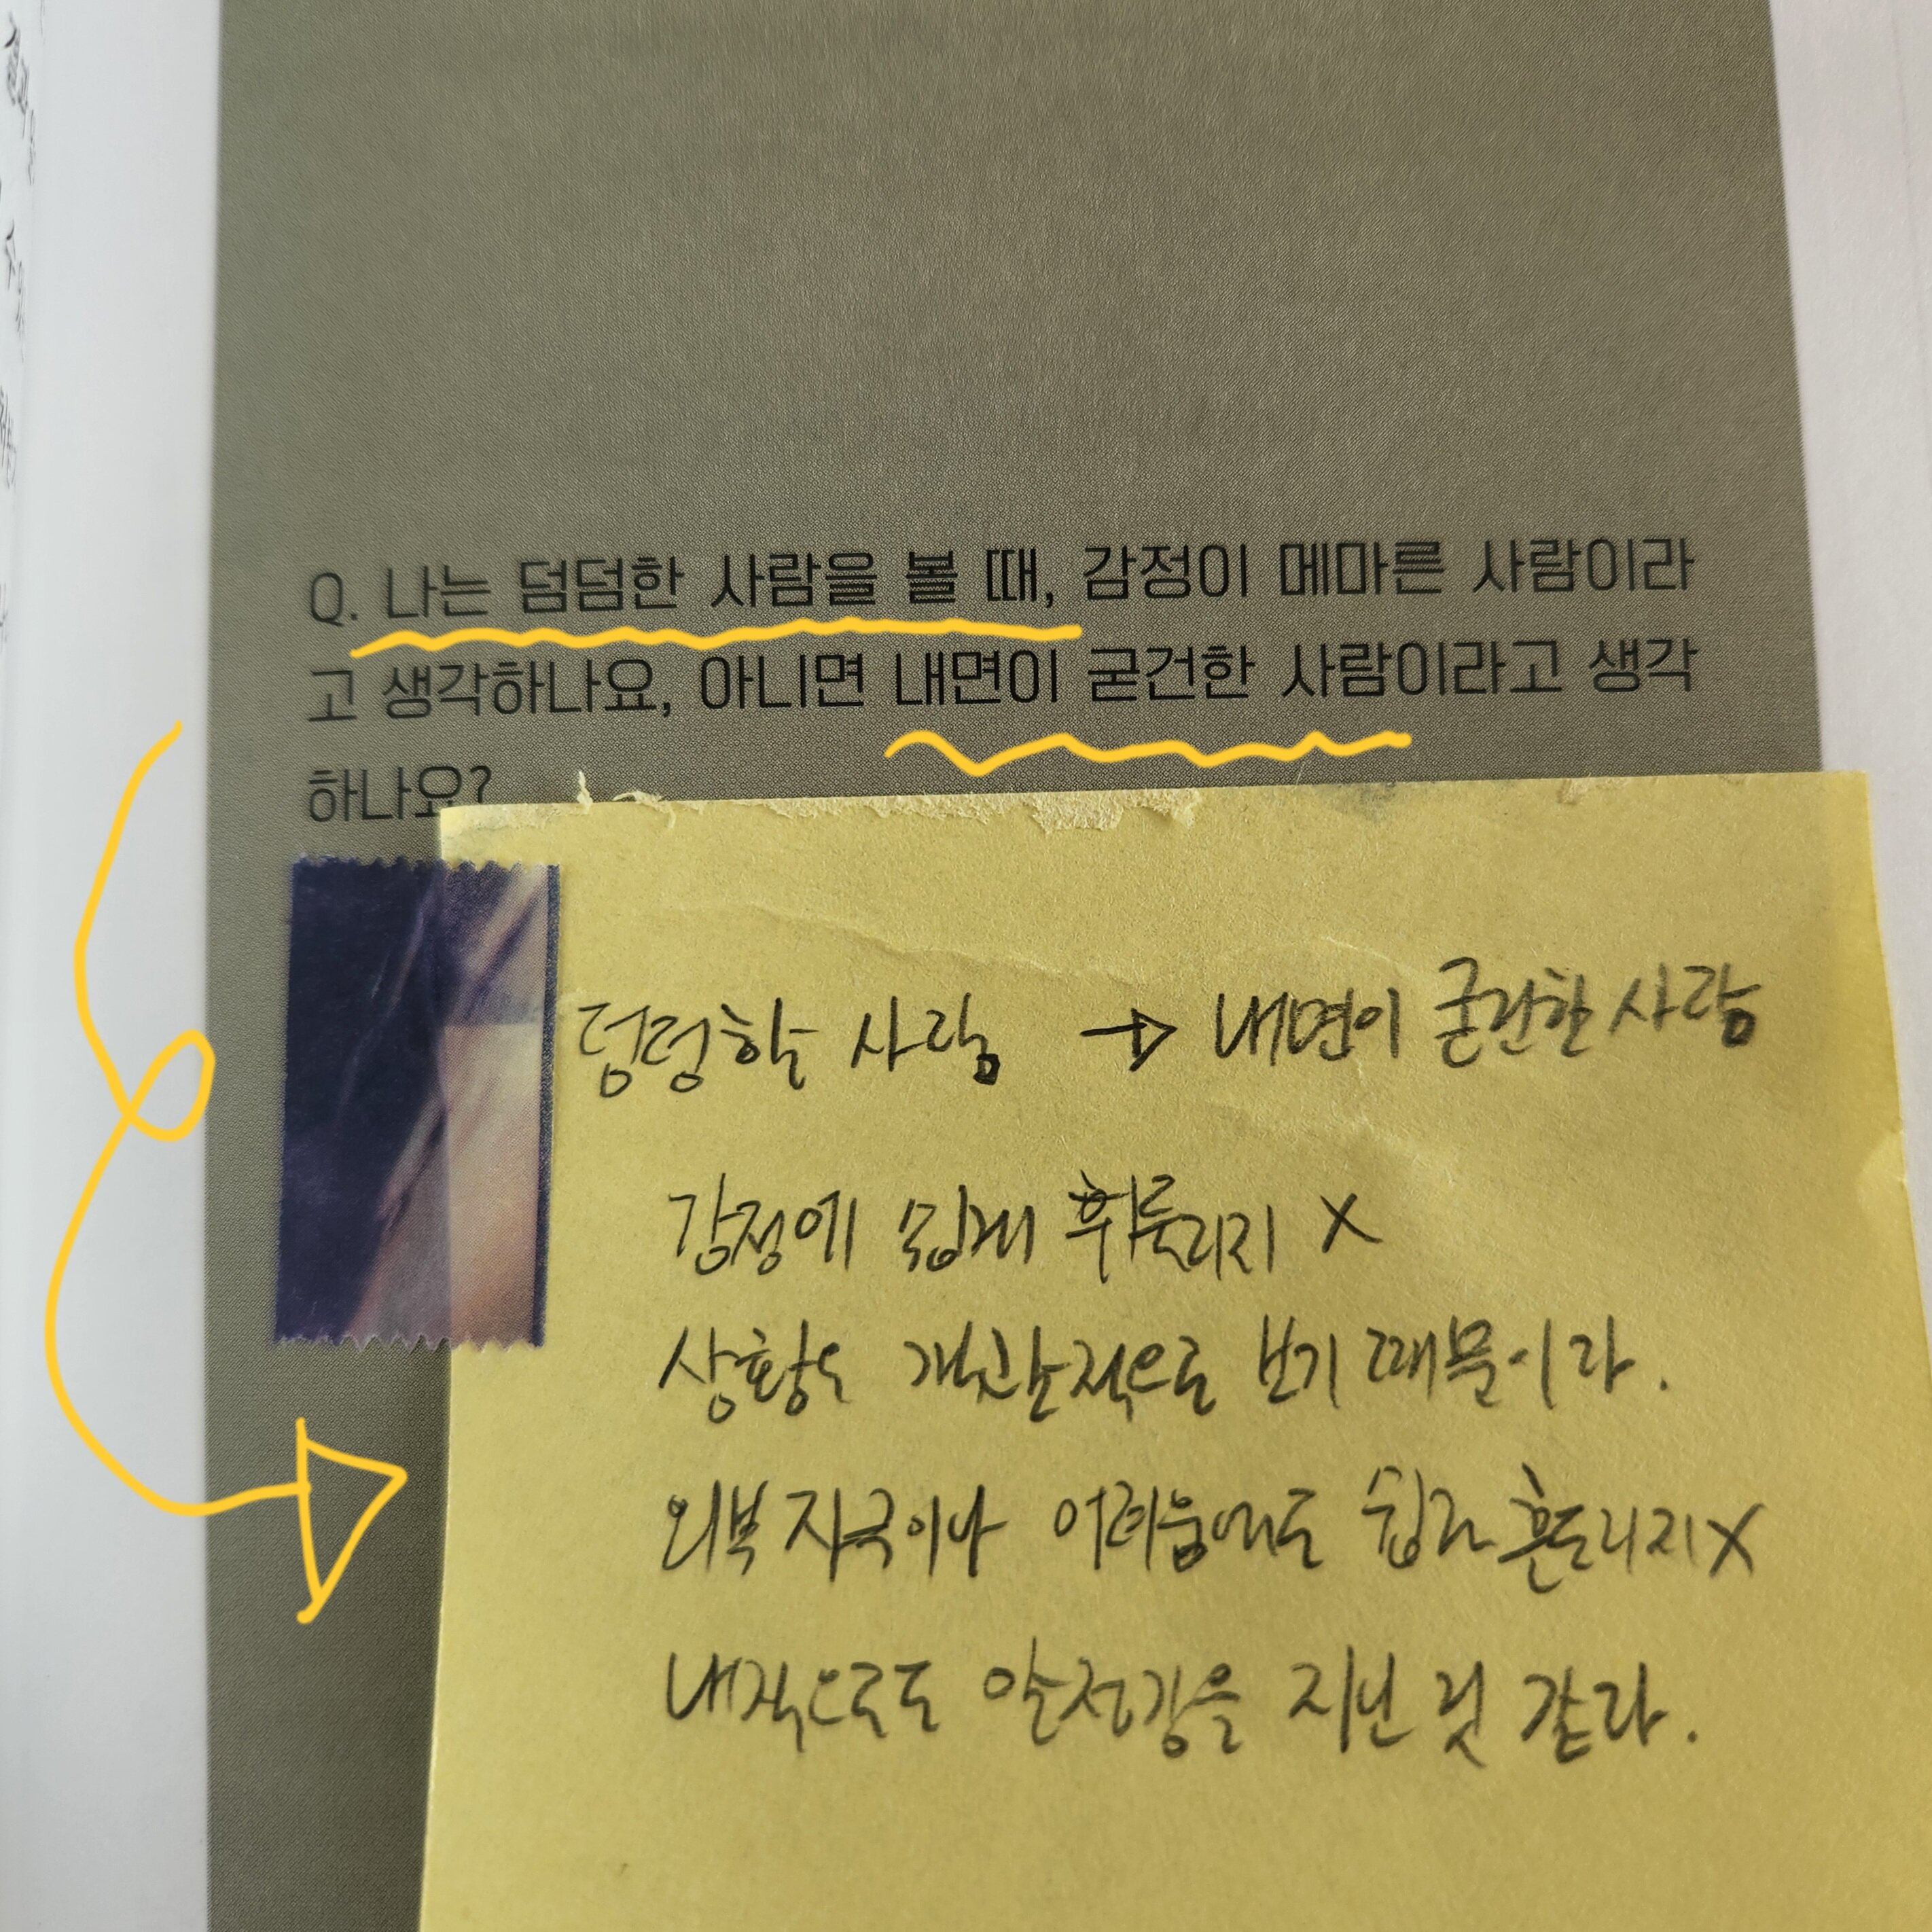 Q. 나는 덤덤한 사람을 볼 때, 감정이 메마른 사람이라
고 생각하나요, 아니면 내면이 굳건한 사람이라고 생각
하나요?
덤덤한 사람 → 내면이 굳건한 사람
감정에 쉽게 휘둘리지 X
상황도 객관적으로 보기 때문이라.
외부 자극이나 어려움에도 쉽게 흔들리지 X
내적으로도 안정감을 지닌 것 같다.